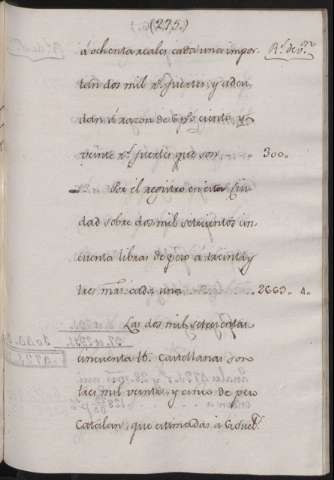 (275.)
á ochenta reales cada una impor- R.s de v.n
tan dos mil r.s fuertes, y adeu-
dan á razon de 6 p% ciento, y
veinte r.s fuertes que son 300..
Por el registro en esta Ciu-
dad sobre dos mil setecientos cin-
cuenta libras de peso á treinta y
tres mrs. cada una 2669.. 4..
Las dos mil setecientas
cincuenta lb. Castellanas son
tres mil veinte, y cinco de peso
Catalan, que estimadas á